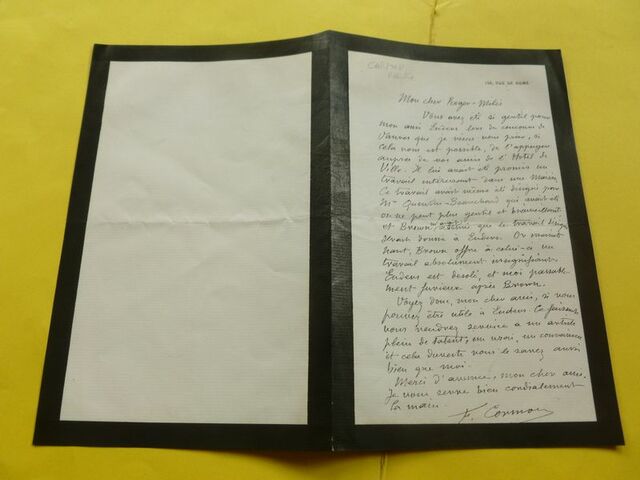 CORMON
159, RUE DE ROME
Mon cher Roger-Milès
Vous avez été si gentil pour
mon ami Enders lors du concours de
Vanves que je viens vous prier, si
cela vous est possible, de l'appuyer
auprès de vos amis de l'Hôtel de
Ville. Il lui avait été promis un
travail intéressant dans une Mairie.
Ce travail avait même été désigné par
Mr Quentin-Beauchard qui avait été
on ne peut plus gentil et bienveillant
et Brown, que le travail désigné
serait donné à Enders. Or mainte
nant, Brown offre à celui-ci un
travail absolument insignifiant.
Enders est désolé, et moi passable
ment furieux après Brown.
Voyez donc, mon cher ami, si vous
pouvez être utile à Enders. Ce faisant
vous rendrez service à un artiste
plein de talent, un vrai, un convaincu
et cela vous le savez aussi
bien que moi.
Merci d'avance, mon cher ami.
Je vous serre bien cordialement
la main.
F. Cormon